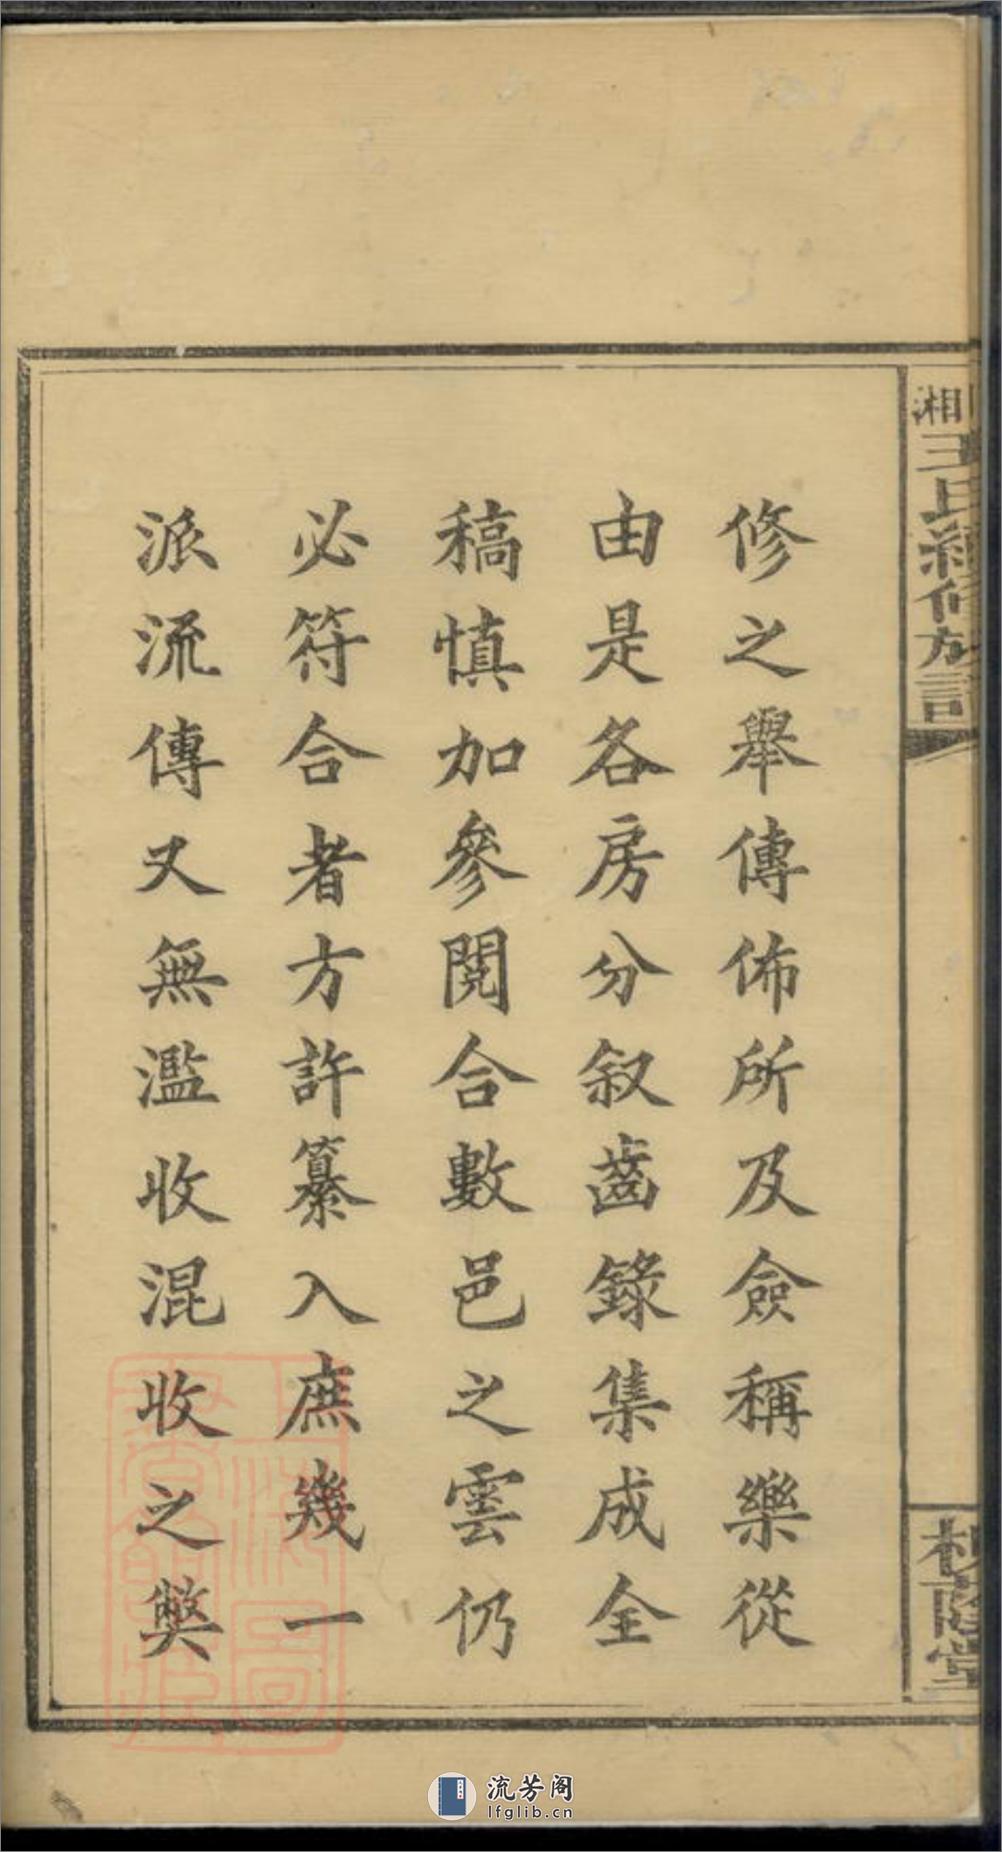 修之舉傳佈所及僉稱樂從
由是各房分叙齒錄集成全
稿慎加參閱合數邑之雲仍
必符合者方許纂入庶幾一
派流傳又無濫收混收之獘
湘王氏續修族譜
流芳阁
lfglib.cn